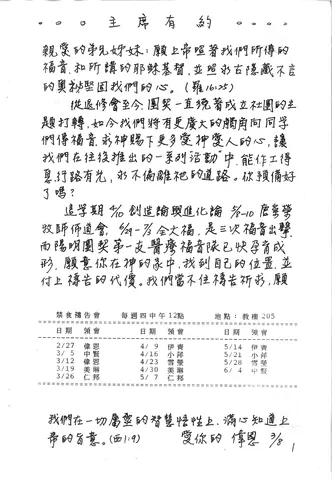 主席有約
親愛的弟兄姊妹：願上帝照著我們所傳的
福音，和所講的耶穌基督，並照永古隱藏不言
的奧秘堅固我們的心。（羅16:25）
從退修會至今，團契一直繞著成立社團的主
題打轉，如今我們將有更廣大的觸角向同學
們傳福音，求神賜下更多愛神愛人的心，讓
我們在往後推出的一系列活動"中，能作工得
息，行路有光，永不偏離祂的道路。你預備好
了嗎？
這學期 4/10 創造論與進化論 5/8-10
牧師佈道會，6/29-7/3 全大福，是三次福音出擊，
而陽明團契第一支醫療福音隊已快孕育成
形，願意你在神的家中，找到自己的位置，並
付上禱告的代價。我們當不住禱告祈求，願
禁食禱告會 每週四中午12點 地點：教樓205
日期 領會 日期 領會 日期 領會
2/27 偉恩 4/ 9 伊青 5/14 伊青
3/ 5 中賢 4/16 小邱 5/21 小邱
3/12 偉恩 4/23 雪瑩 5/28 雪瑩
3/19 美琳 4/30 美琳 6/ 4 中賢
3/26 仁邦 5/ 7 仁邦
我們在一切屬靈的智慧悟性上，滿心知道上
帝的旨意。（西1:9） 愛你的 偉恩 3/8
1